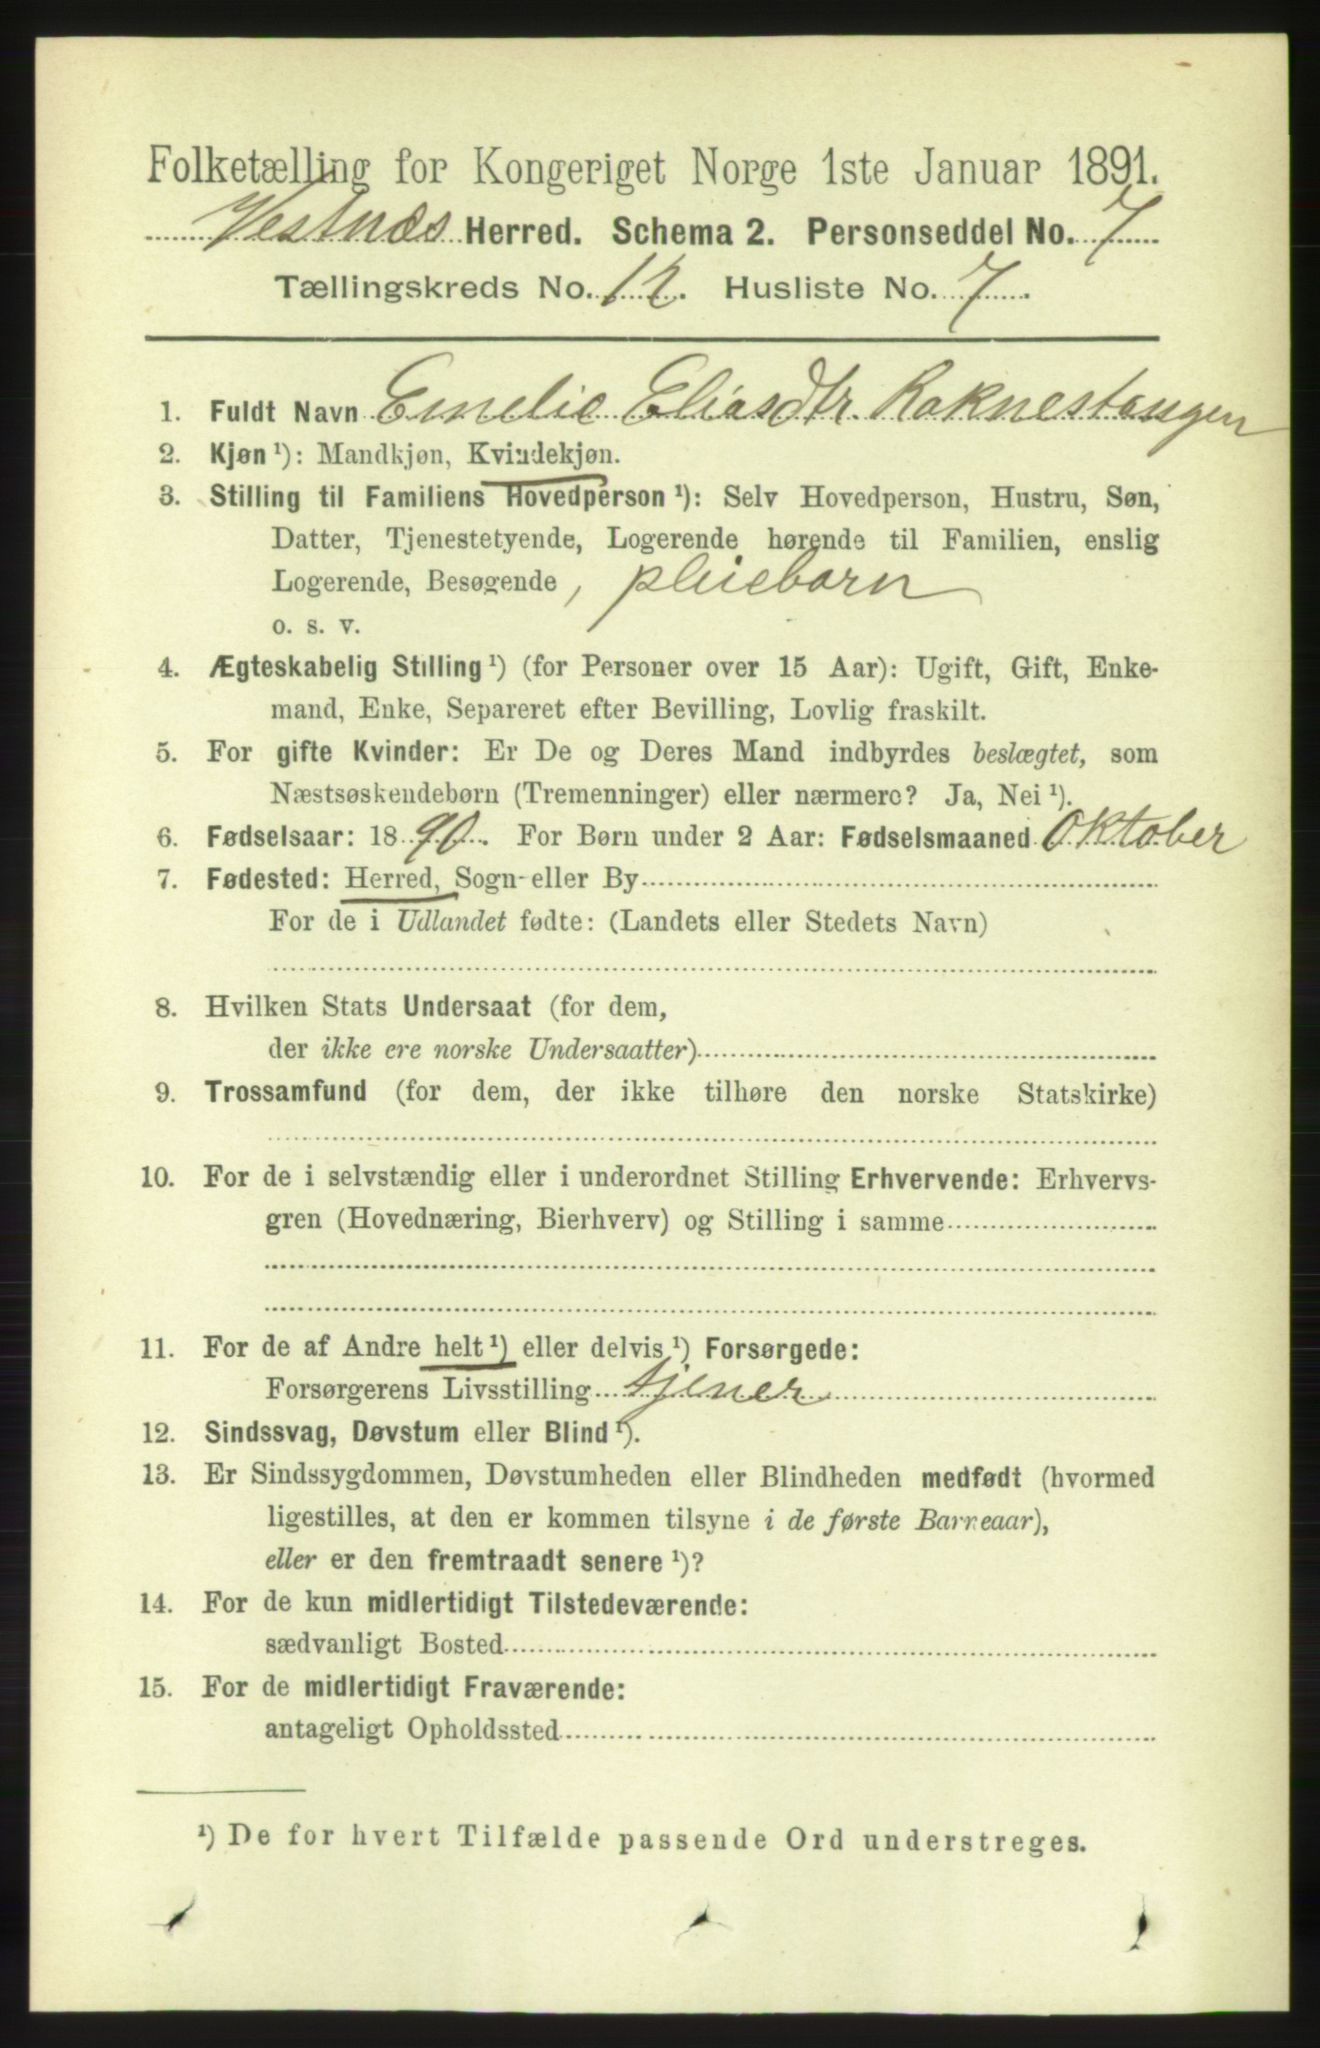 Folketælling for Kongeriget Norge 1ste Januar 1891.
Vestnæs Herred. Schema 2. Personseddel No. 7
Tællingskreds No. 12. Husliste No. 7.
1. Fuldt Navn Emelie Eliasdtr. Raknestangen
2. Kjøn ¹): Mandkjøn, Kvindekjøn.
3. Stilling til Familiens Hovedperson ¹): Selv Hovedperson, Hustru, Søn,
Datter, Tjenestetyende, Logerende hørende til Familien, enslig
Logerende, Besøgende, pleiebarn
o. s. v.
4. Ægteskabelig Stilling ¹) (for Personer over 15 Aar): Ugift, Gift, Enke-
mand, Enke, Separeret efter Bevilling, Lovlig fraskilt.
5. For gifte Kvinder: Er De og Deres Mand indbyrdes beslægtet, som
Næstsøskendebørn (Tremenninger) eller nærmere? Ja, Nei ¹).
6. Fødselsaar: 1890. For Børn under 2 Aar: Fødselsmaaned Oktober
7. Fødested: Herred, Sogn eller By
For de i Udlandet fødte: (Landets eller Stedets Navn)
8. Hvilken Stats Undersaat (for dem,
der ikke ere norske Undersaatter)
9. Trossamfund (for dem, der ikke tilhøre den norske Statskirke)
10. For de i selvstændig eller i underordnet Stilling Erhvervende: Erhvervs-
gren (Hovednæring, Bierhverv) og Stilling i samme
11. For de af Andre helt ¹) eller delvis ¹) Forsørgede:
Forsørgerens Livsstilling tjener
12. Sindssvag, Døvstum eller Blind ¹).
13. Er Sindssygdommen, Døvstumheden eller Blindheden medfødt (hvormed
ligestilles, at den er kommen tilsyne i de første Barneaar),
eller er den fremtraadt senere ¹)?
14. For de kun midlertidigt Tilstedeværende:
sædvanligt Bosted
15. For de midlertidigt Fraværende:
antageligt Opholdssted
¹) De for hvert Tilfælde passende Ord understreges.